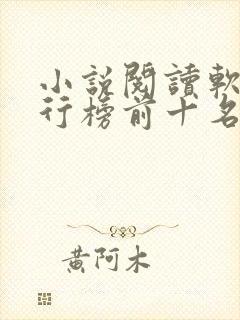 小說閱讀軟
行榜前十名
黃阿木